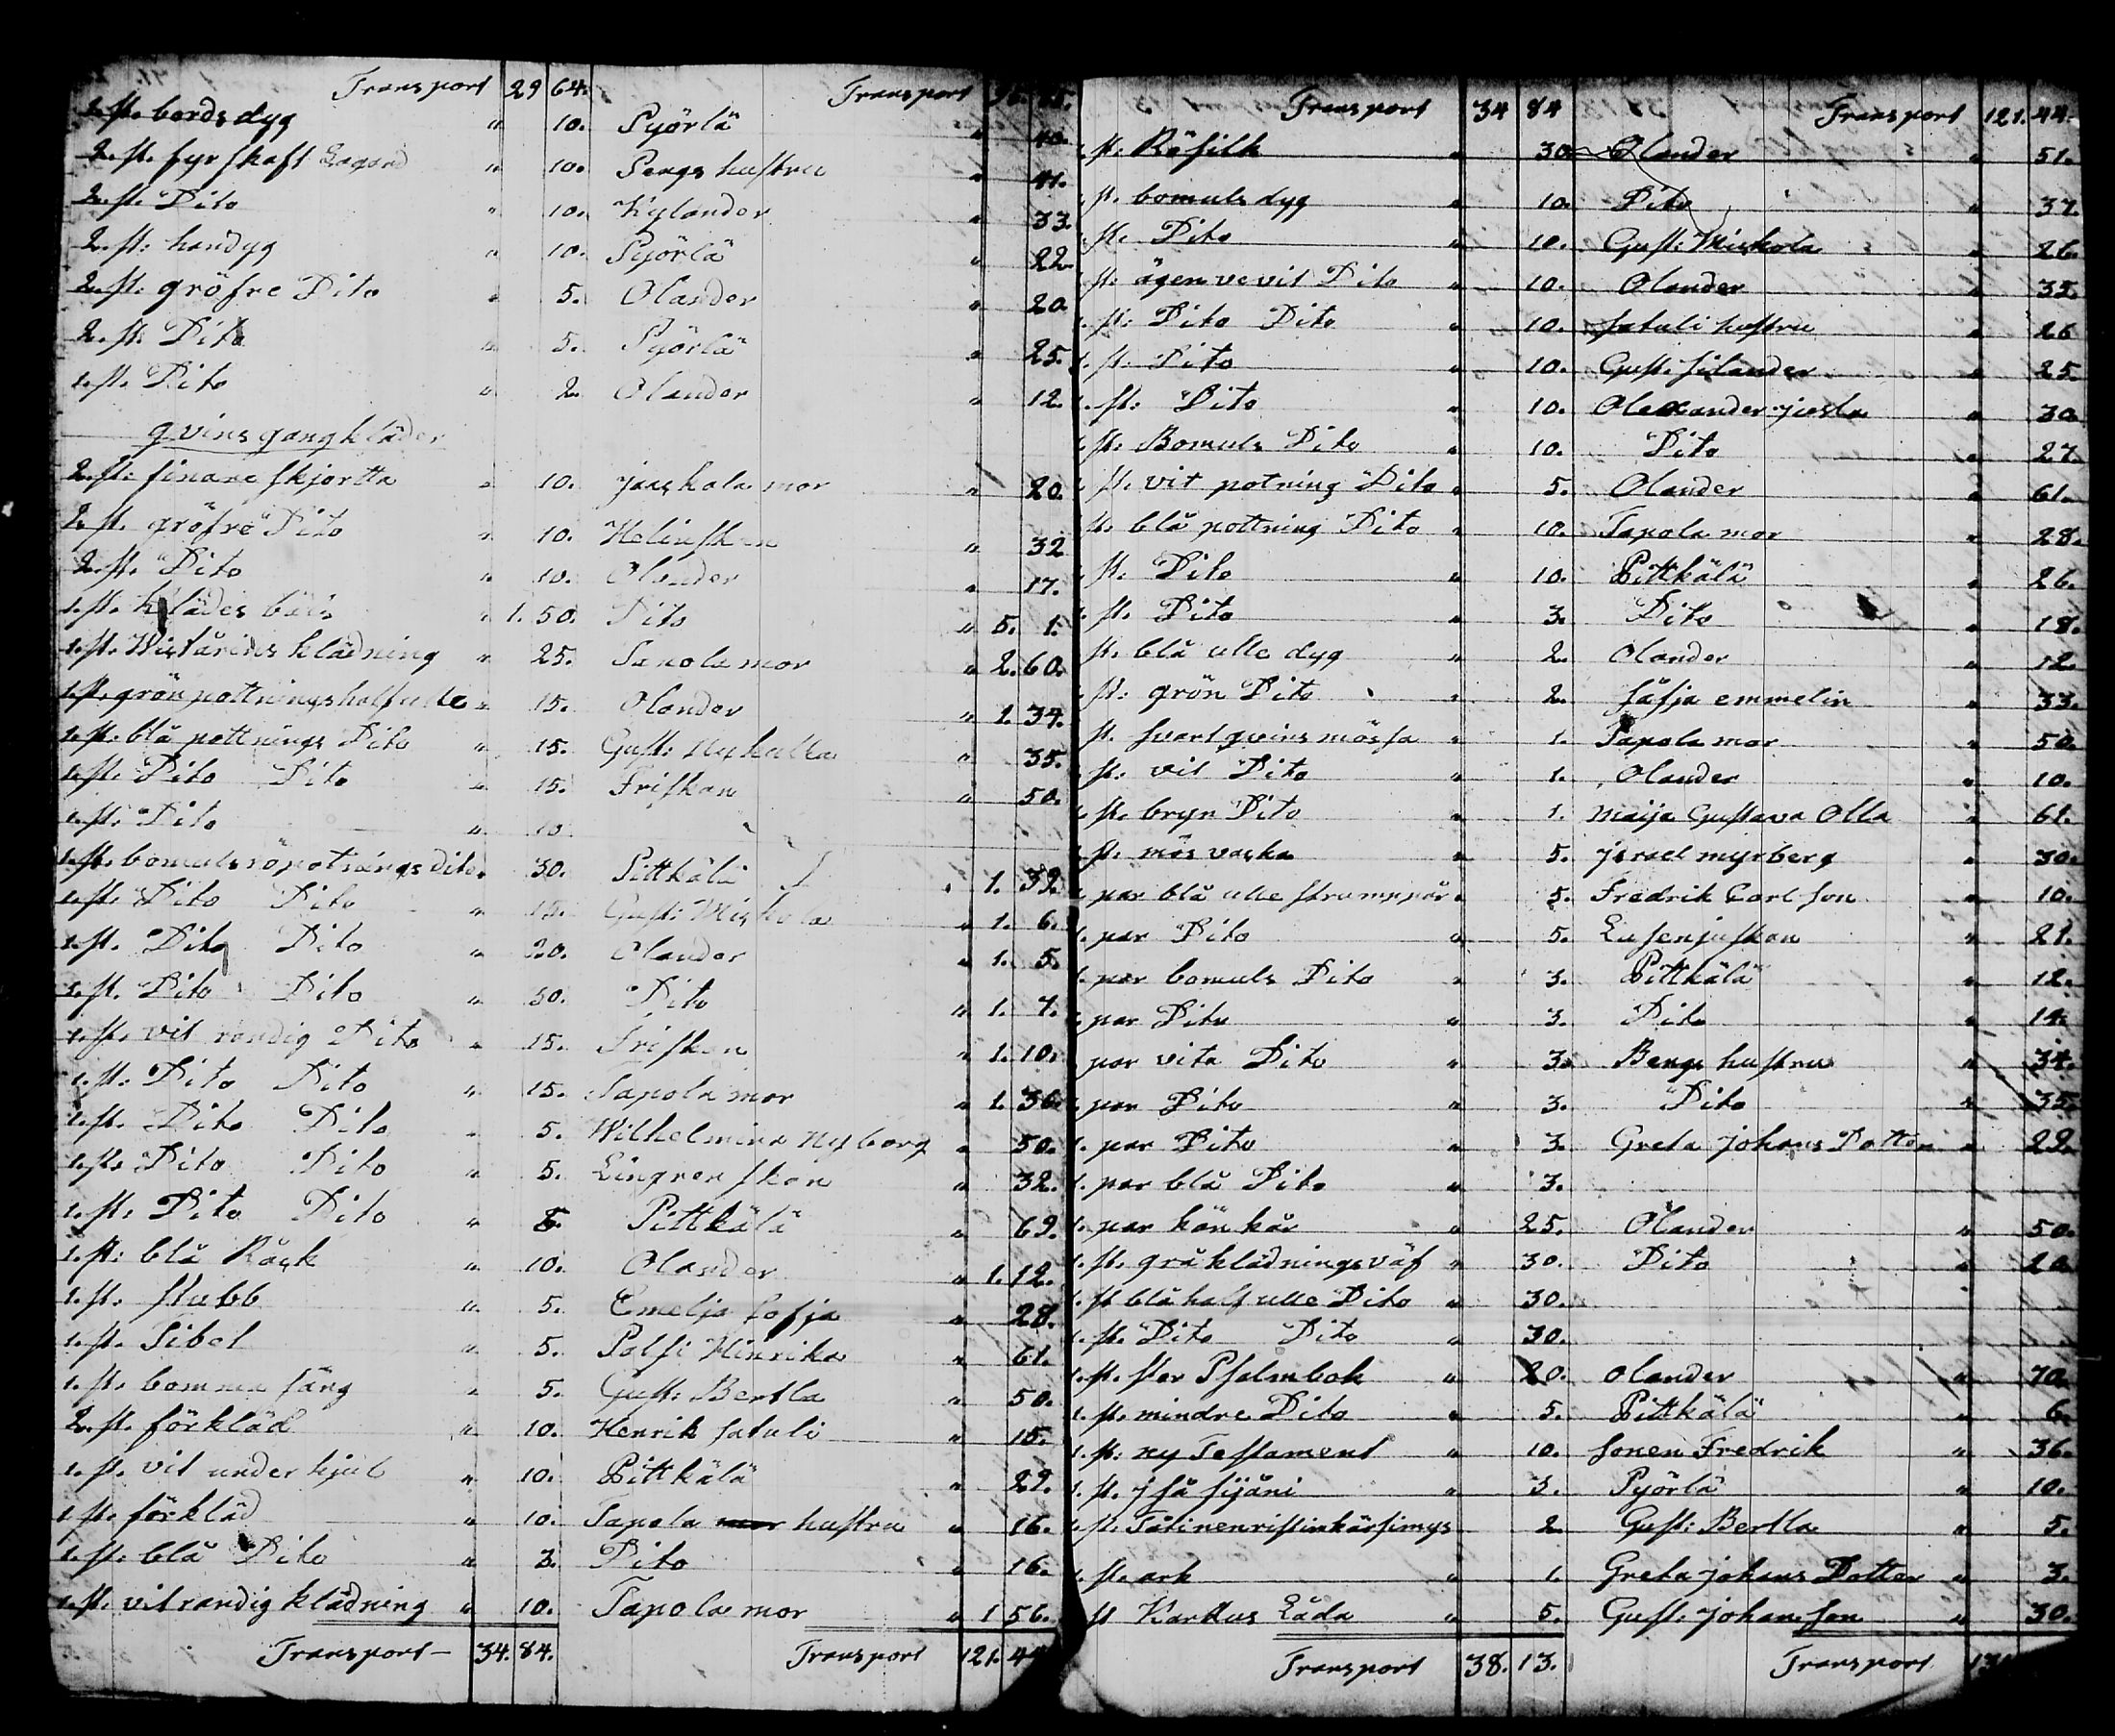 Transport 29 64. Transport 85.
2. st. bords dyg " 10. Pyörlä " 40.
2. st. fyr skaft Lagand " 10. Pengs hustru " 41.
2. st. Dito " 10. Kylander " 33.
2. st: handyg " 10. Pyörlä " 22.
2. st: gröfre Dito " 5. Olander " 20.
2. st. Dito " 5. Pyörlä " 25.
1. st. Dito " 2. Olander " 12.
qvins gangkläder
2. st: finare skjortta " 10. jaaskala mor " 20
2. st. gröfre Dito " 10. Helinskan " 32
2. st. Dito " 10. Olander " 17.
1. st. klädes " 1. 50. Dito " 5. 1.
1. st. klädning " 25. Tapola mor " 2. 60.
1. st. grön pottnings half ulle " 15. Olander " 1. 34.
1. st: blå pottnings Dito " 15. Gust: Nykulla " 35.
1. st. Dito Dito " 15. Friskan " 50.
1. st. Dito " 10
1. st. bomuls röpotnings Dito " 30. Pittkälä " 1. 39.
1. st. Dito Dito " 15. Gust: Miskola " 1. 6.
1. st. Dito Dito " 20. Olander " 1. 5.
1. st. Dito Dito " 30. Dito " 1. 7.
1. st. vit randig Dito " 15. Friskan " 1. 10.
1. st: Dito Dito " 15. Tapola mor " 1. 36.
1. st. Dito Dito " 5. Wilhelmina Nyborg " 50.
1. st. Dito Dito " 5. Lingrenskan " 32.
1. st: Dito Dito " 5. Pittkälä " 69.
1. st: blå Råck " 10. Olander " 1. 12.
1. st. stubb " 5. Emelja Sofja " 28.
1. st. Sibel " 5. Polsi Hinrika " 61.
1. st. bomma säng " 5. Gust: Bertla " 50.
2. st. förkläd " 10. Henrik Satuli " 15.
1. st. vit under kjul " 10. Pittkälä " 29.
1. st. förkläd " 10. Tapola hustru " 16.
1. st: blå Dito " 3. Dito " 16.
1. st. vit randig klädning " 10. Tapola mor " 1 56.
Transport 34. 84. Transport 121. 44
Transport 34 84 Transport 121. 44.
st: Rösilk " 30 Olander " 51.
st. bomuls dyg " 10. Dito " 37.
st. Dito " 10. Gust: Miskola " 26.
st: ägen vevit Dito " 10. Olander " 35.
st: Dito Dito " 10. Satuli hustru " 26
1. st. Dito " 10. Gust. Silander " 25.
1. st: Dito " 10. Olexander " 30.
st: Bomuls Dito " 10. Dito " 27.
st. vit potning Dito " 5. Olander " 61.
st. blå pottning Dito " 10. Tapola mor " 28.
st. Dito " 10. Pittkälä " 26.
st. Dito " 3. Dito " 18.
st. blå ulle dyg " 2. Olander " 12.
st: grön Dito " 2. Säfja emmelin " 33.
st. svart qvins mössa " 1. Tapola mor " 50.
st: vit Dito " 1. Olander " 10.
st. bryn Dito " 1. Maija Gustava Olla " 61.
st: mös vaska " 5. jsrael myrberg " 30.
par blå ulle strumpor " 5. Fredrik Carl son " 10.
par Dito " 5. Lusenjuskan " 21.
par bomuls Dito " 3. Pittkälä " 12.
par Dito " 3. Dito " 14.
par vita Dito " 3. Bengs hustru " 34.
par Dito " 3. Dito " 35.
1. par Dito " 3. Greta johans Dotter " 22.
1. par blå Dito " 3.
1. par kän kår " 25. Olander " 50.
1. st. grå klädnings väf " 30. Dito " 20
1. st blå half ulle Dito " 30.
1. st. Dito Dito " 30.
1. st. ster Psalmbok " 20. Olander " 70.
1. st. mindre Dito " 5. Pittkälä " 6.
1. st: ny Testament " 10. Sonen Fredrik " 36.
1. st. jså sijåni " 3. Pyörlä " 10.
1. st. 2 Gust: Bertla " 5.
1. st. ark " 1. Greta johans Dotter " 3.
st Karttus Låda " 5. Gust: johan son " 30.
Transport 38. 13. Transport